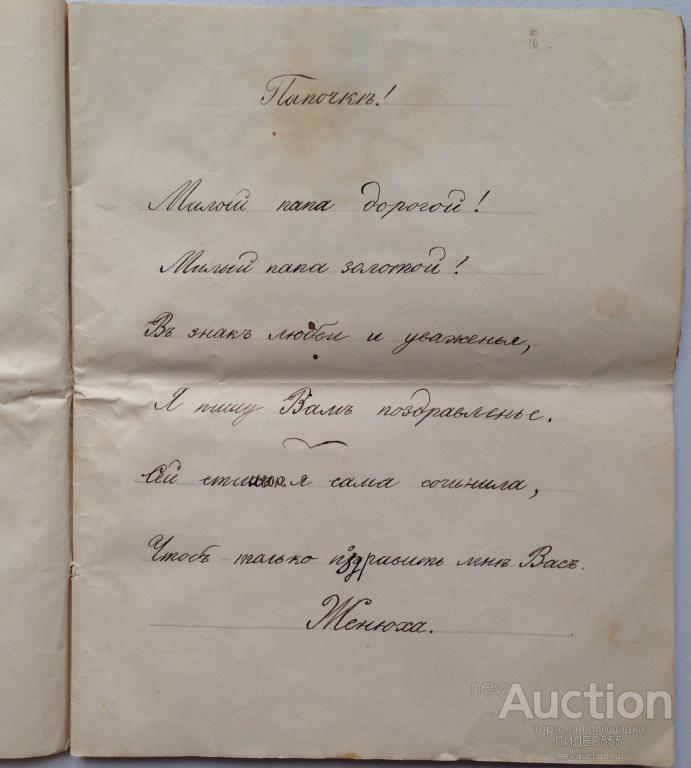 Папочкѣ!
Милой папа дорогой!
Милый папа золотой!
Въ знакъ любви и уваженья,
Я пишу Вамъ поздравленье.
Сей стишокъ я сама сочинила,
Чтобъ только поздравить мнѣ Васъ.
Женюха.
newAuction
торговая площадка
ЛИДЕР555
newauction.ru